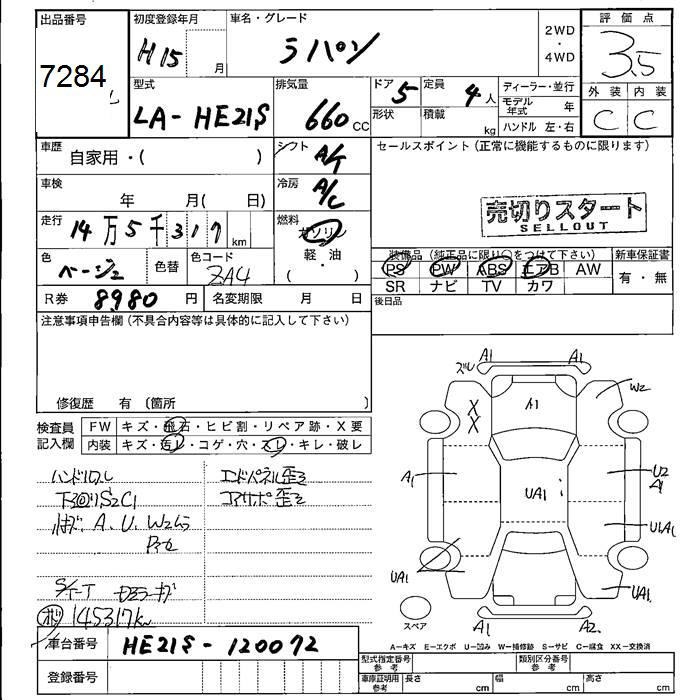 出品番号
7284
初度登録年月
H15 月
車名・グレード
ラパン
2WD
・
4WD
評価点
3.5
外装 内装
C C
型式
LA- HE21S
排気量
660 CC
ドア 5
形状
定員 4 人
積載 kg
ディーラー・並行
モデル年式 年
ハンドル 左・右
車歴
自家用・( )
シフト A/T
車検
年 月( 日)
冷房 A/C
走行
14万5千317 km
燃料
ガソリン
軽・油
( )
色
ベージュ
色替
色コード
ZA4
R券 8980 円
名変期限 月 日
セールスポイント(正常に機能するものに限ります)
売切りスタート
SELLOUT
装備品(純正品に限り○をつけて下さい)
PS PW ABS エアB AW
SR ナビ TV カワ
新車保証書
有・無
後日品
注意事項申告欄(不具合内容等は具体的に記入して下さい)
修復歴 有 (箇所 )
検査員記入欄
FW キズ・飛石・ヒビ割・リペア跡・X要
内装 キズ・汚レ・コゲ・穴・スレ・キレ・破レ
ハンドルスレ
下回りS2C1
エンドパネル歪
コアサポ歪
A、U、W2
S/T-T
145317km
車台番号 HE21S-120072
登録番号
ズレ A1 A1
A1
W2
X
X
A1
UA1
U2
A1
UA1
UA1
UA1
スペア
A1 A2
A-キズ E-エクボ U-凹み W-補修跡 S-サビ C-腐食 XX-交換済
型式指定番号
参考
類別区分番号
参考
車庫証明用
参考
長さ cm
幅 cm
高さ cm